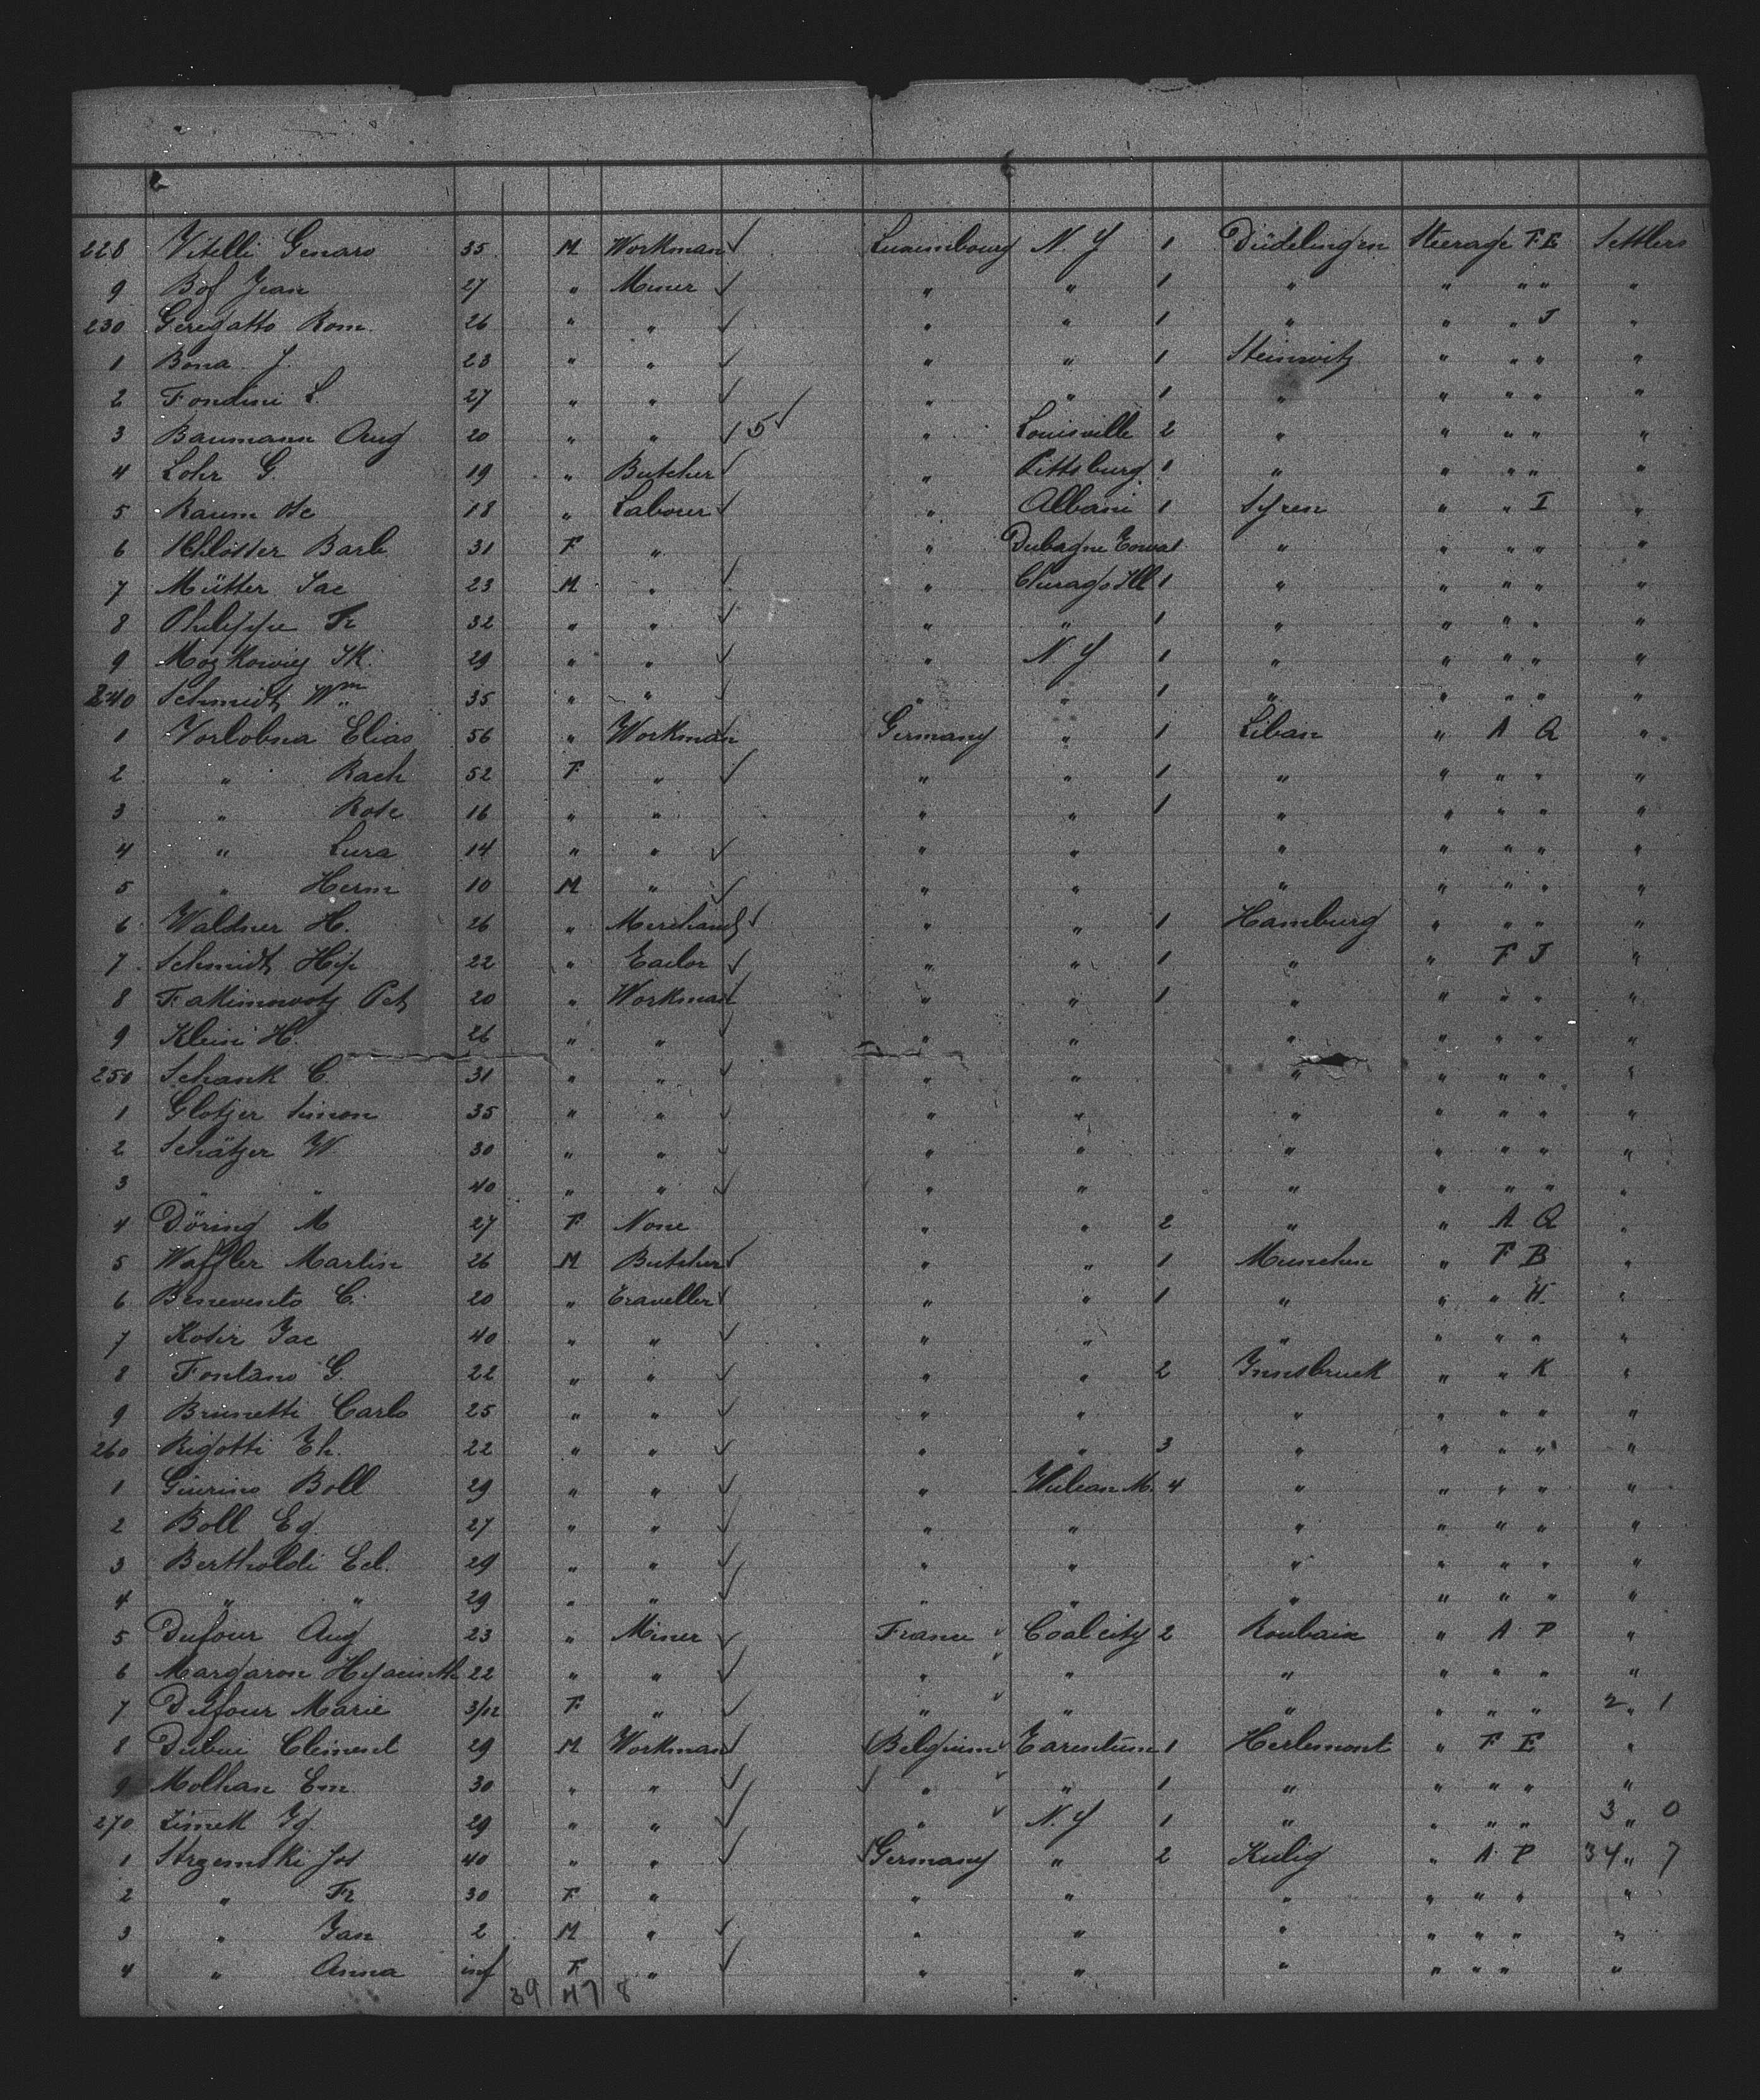 228 Vitelli Genaro 35 M Workman Luxembourg N. Y 1 Düdelingen Steerage F E Settlers
9 Bof Jean 27 " Miner " " 1 " " " " "
230 Geregatto Rom. 26 " " " " 1 " " " J "
1 Bona J. 23 " " " " 1 Steinwitz " " " "
2 Fondini L. 27 " " " " 1 " " " " "
3 Baumann Aug 20 " " 5 " Louisville 2 " " " " "
4 Lohr G. 19 " Butcher " Pittsburg 1 " " " " "
5 Raum 18 " Labourer " Albani 1 Syren " " I "
6 Schlösser Barb 31 F " " 1 " " " " "
7 Mütter Jac 23 M " " Chicago Ill 1 " " " " "
8 Philippe Fr 32 " " " " 1 " " " " "
9 29 " " " N. Y 1 " " " " "
240 Schmidt Wm 35 " " " " 1 " " " " "
1 Vorlobna Elias 56 " Workman Germany " 1 Liban " A Q "
2 " Rach 52 F " " " 1 " " " " "
3 " Rose 16 " " " " 1 " " " " "
4 " Lura 14 " " " " " " " " "
5 " Herm 10 M " " " " " " " "
6 Waldner H. 26 " Merchant " " 1 Hamburg " " " "
7 Schmidt Hip 22 " Tailor " " 1 " " F J "
8 Pet 20 " Workman " " 1 " " " " "
9 Klein H. 26 " " " " " " " " "
250 Schank C. 31 " " " " " " " " "
1 Glotzer Simon 35 " " " " " " " " "
2 Schätzer W. 30 " " " " " " " " "
3 " " 40 " " " " " " " " "
4 Döring M 27 F None " " 2 " " A Q "
5 Waffler Martin 26 M Butcher " " 1 Munchen " F B "
6 Benevento C. 20 " Traveller " " 1 " " " H. "
7 Koter Jac 40 " " " " " " " " "
8 Fontano G. 22 " " " " 2 Innsbruck " " K "
9 Brunetti Carlo 25 " " " " " " " " "
260 Rigotti Eh. 22 " " " " 3 " " " " "
1 Boll 29 " " " Vulcan M. 4 " " " " "
2 Boll Eg. 27 " " " " " " " " "
3 Bertholdi Ed. 29 " " " " " " " " "
4 " " 29 " " " " " " " " "
5 Dufour Aug 23 " Miner France Coalcity 2 Roubaix " A P "
6 Margaron Hyacinth 22 " " " " " " " " "
7 Dufour Marie 3/12 F " " " " " " " 2 " 1
8 Dubui Clement 29 M Workman Belgium Tarentum 1 Herlemont " F E "
9 Molhan Em. 30 " " " " 1 " " " " "
270 Zimek Ig. 29 " " " N. Y 1 " " " " 3 " 0
1 Strzemski Jos 40 " " Germany " 2 Kulig " A P 34 " 7
2 " Fr 30 F " " " " " " " "
3 " Jan 2 M " " " " " " " "
4 " Anna inf F " " " " " " " "
39 47 8